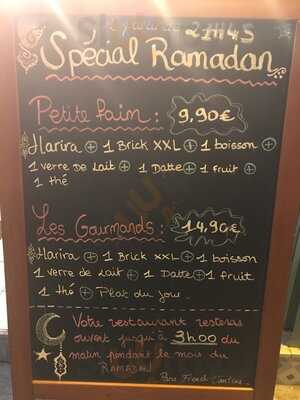 22H45
Spécial Ramadan
Petite faim : 9,90€
Harira + 1 Brick XXL + 1 boisson +
1 verre de lait + 1 Datte + 1 fruit +
1 thé
Les Gourmands : 14,90€
Harira + 1 Brick XXL + 1 boisson
1 verre de lait + 1 Datte + 1 fruit
1 thé + Plat du jour
Votre restaurant restera
ouvert jusqu'à 3h00 du
matin pendant le mois du
RAMADAN